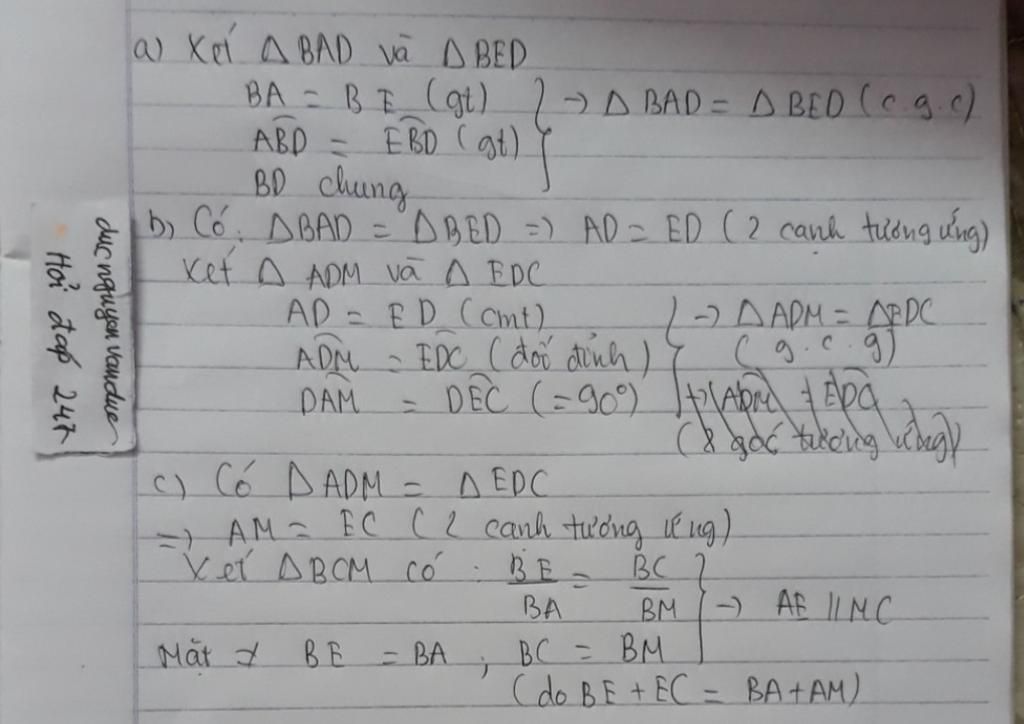 a) Xét △BAD và △BED
BA = BE (gt)
ABD = EBD (gt)
BD chung
→ △BAD = △BED (c.g.c)
b) Có: △BAD = △BED => AD = ED (2 cạnh tương ứng)
Xét △ADM và △EDC
AD = ED (cmt)
ADM = EDC (đối đỉnh)
DAM = DEC (=90°)
→ △ADM = △EDC
(g.c.g)
→ ADM = EDC
(2 góc tương ứng)
c) Có △ADM = △EDC
=> AM = EC (2 cạnh tương ứng)
Xét △BCM có: BE/BA = BC/BM
→ AE // MC
Mặt ≠ BE = BA ; BC = BM
(do BE + EC = BA + AM)
ducnguyenvanduc
Hỏi đáp 247